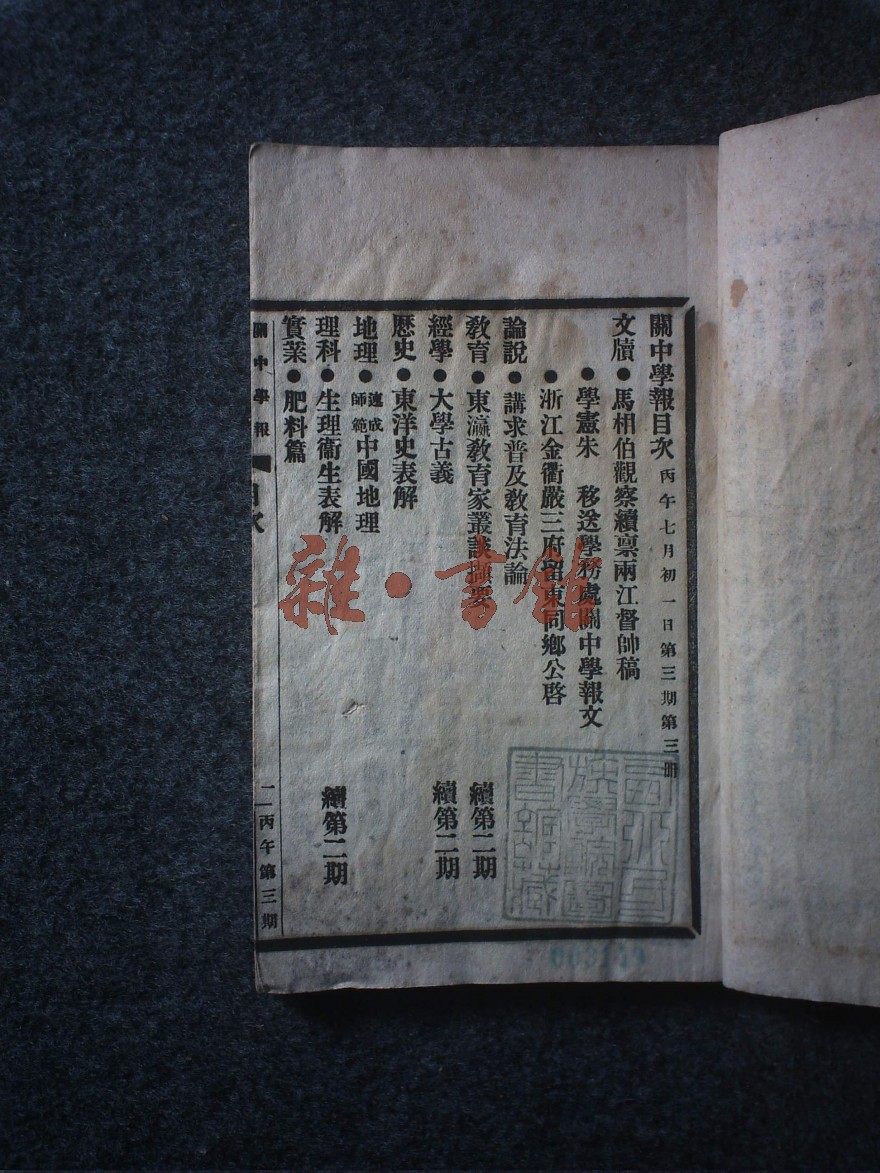 關中學報目次 丙午七月初一日第三期第三册
文牘●馬相伯觀察續禀兩江督帥稿
●學憲朱 移送學務處關中學報文
●浙江金衢嚴三府留東同鄉公啓
論説●講求普及敎育法論
敎育●東瀛敎育家叢談擷要 續第二期
經學●大學古義 續第二期
歷史●東洋史表解
地理●速成師範中國地理
理科●生理衞生表解 續第二期
實業●肥料篇
關中學報 目次 二 丙午第三期
雜·書館